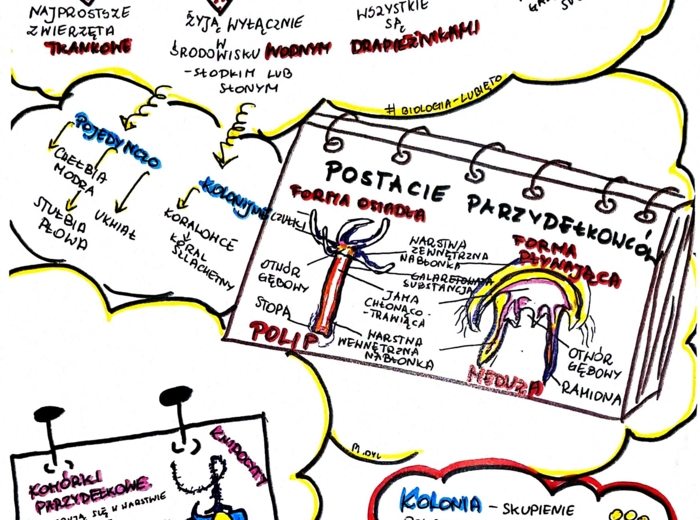 NAJPROSTSZE
ZWIERZĘTA
TKANKOWE
ŻYJĄ WYŁĄCZNIE
W
ŚRODOWISKU WODNYM
-SŁODKIM LUB
SŁONYM
WSZYSTKIE
SĄ
DRAPIEŻNIKAMI
# BIOLOGIA-LUBIĘTO
POJEDYNCZO
CHEŁBIA
MODRA
STUŁBIA
PŁOWA
UKWIAŁ
KOLONIJNIE
KORALOWCE
KORAL
SZLACHETNY
POSTACIE PARZYDEŁKOWCÓW
FORMA OSIADŁA
CZUŁKI
OTWÓR
GĘBOWY
STOPA
POLIP
WARSTWA
ZEWNĘTRZNA
NABŁONKA
GALARETOWATA
SUBSTANCJA
JAMA
CHŁONĄCO-
-TRAWIĄCA
WARSTWA
WEWNĘTRZNA
NABŁONKA
FORMA
PŁYWAJĄCA
OTWÓR
GĘBOWY
RAMIONA
MEDUZA
KOMÓRKI
PARZYDEŁKOWE
SIĘ W WARSTWIE
KOLONIA - SKUPIENIE